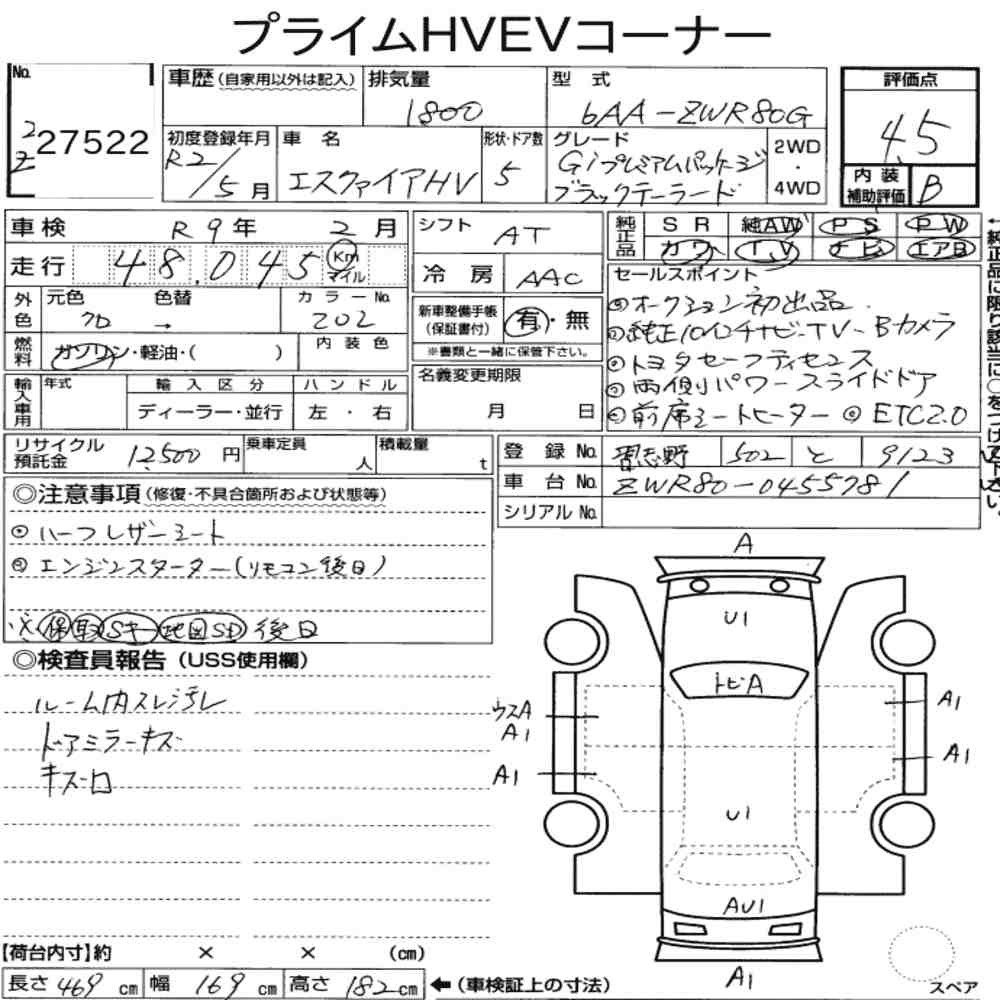 プライムHVEVコーナー
No.
2
Z
27522
車歴（自家用以外は記入）
排気量
1800
型 式
6AA-ZWR80G
評価点
4.5
初度登録年月
R2/5月
車 名
エスクァイアHV
形状・ドア数
5
グレード
Giプレミアムパッケージ
ブラックテーラード
2WD
・
4WD
内 装
補助評価
B
車検
R 9年 2月
シフト
AT
純正品
SR
純AW
PS
PW
カワ
TV
ナビ
エアB
走行
48,045
Km
マイル
冷 房
AAC
セールスポイント
◎オークション初出品.
◎純正10インチナビ・TV・Bカメラ
◎トヨタセーフティセンス
◎両側パワースライドドア
◎前席シートヒーター ◎ETC2.0
←純正品に限り該当に○をつけて下さい。
外色
元色
クロ
色替
→
カラーNo.
202
新車整備手帳
（保証書付）
有・無
※書類と一緒に保管下さい。
燃料
ガソリン・軽油・（ ）
内装色
輸入車用
年式
輸入区分
ディーラー・並行
ハンドル
左・右
名義変更期限
月 日
リサイクル
預託金
12,500円
乗車定員
人
積載量
t
登 録 No.
習志野 502 と 9123
車 台 No.
ZWR80-0455781
シリアルNo.
◎注意事項（修復・不具合箇所および状態等）
◎ハーフレザーシート
◎エンジンスターター（リモコン後日）
※保取Sキー地図SD後日
◎検査員報告（USS使用欄）
ルーム内スレ汚レ
ドアミラーキズ
キズ口
A
U1
トビA
ウスA
A1
A1
A1
A1
U1
AU1
A1
スペア
【荷台内寸】約 × × （cm）
長さ 469 cm 幅 169 cm 高さ 182 cm ←（車検証上の寸法）